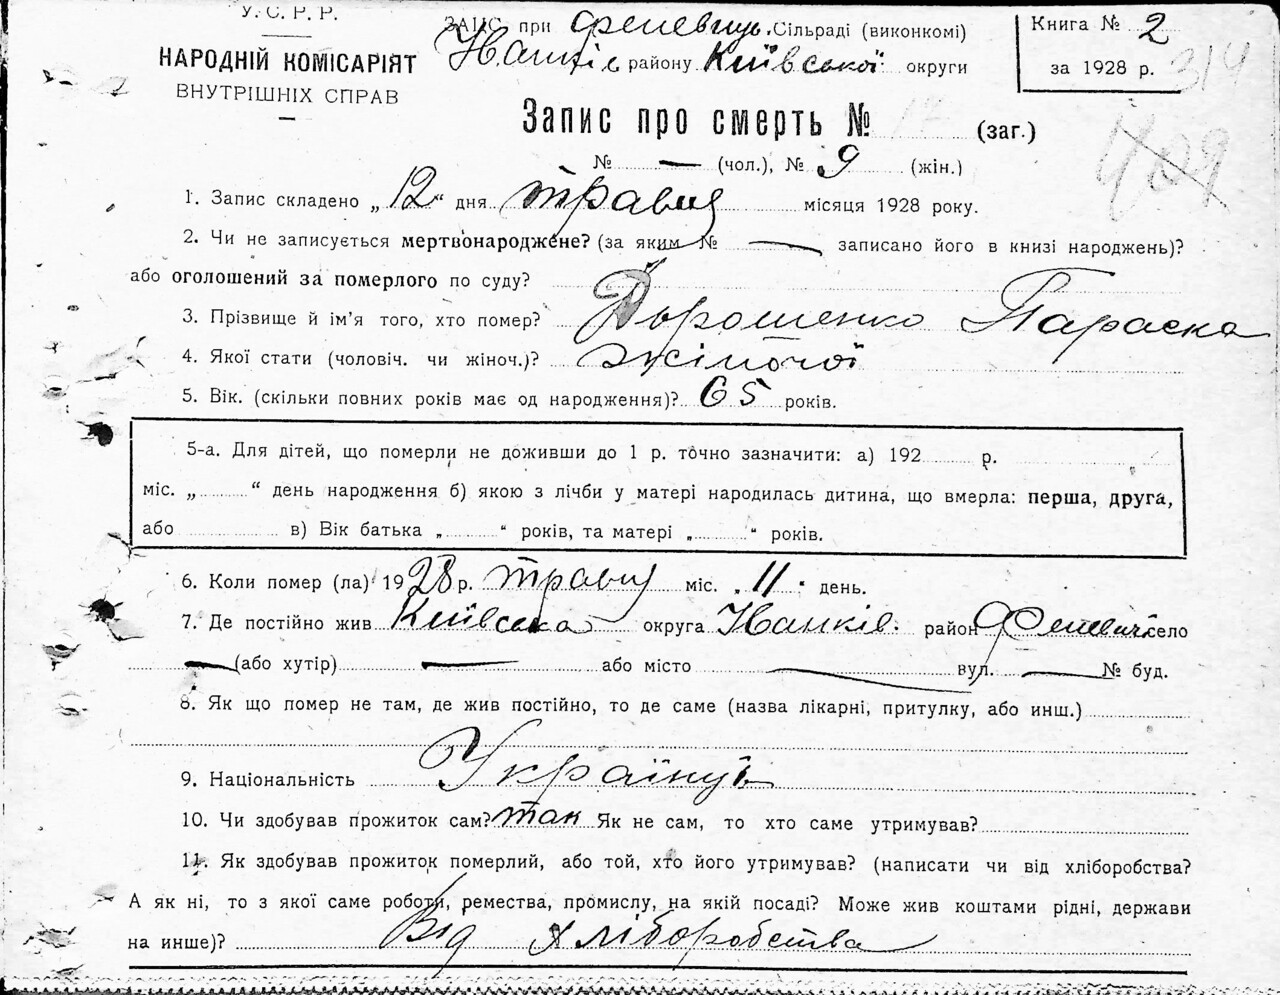 У. С. Р. Р.
НАРОДНІЙ КОМІСАРІЯТ
ВНУТРІШНІХ СПРАВ
ЗАПИС при Сільраді (виконкомі)
району Київської округи
Книга № 2
за 1928 р.
314
409
Запис про смерть № 12 (заг.)
№ — (чол.), № 9 (жін.)
1. Запис складено „12“ дня травня місяця 1928 року.
2. Чи не записується мертвонароджене? (за яким № — записано його в книзі народжень)?
або оголошений за померлого по суду?
3. Прізвище й ім'я того, хто помер? Дорошенко Параска
4. Якої стати (чоловіч. чи жіноч.)? жіночої
5. Вік. (скільки повних років має од народження)? 65 років.
5-а. Для дітей, що померли не доживши до 1 р. точно зазначити: а) 192 р.
міс. „ “ день народження б) якою з лічби у матері народилась дитина, що вмерла: перша, друга,
або в) Вік батька „ “ років, та матері „ “ років.
6. Коли помер (ла) 1928 р. травня міс. „11“ день.
7. Де постійно жив Київська округа район село
— (або хутір) — або місто — вул. — № буд.
8. Як що помер не там, де жив постійно, то де саме (назва лікарні, притулку, або инш.)
9. Національність
10. Чи здобував прожиток сам? так Як не сам, то хто саме утримував?
11. Як здобував прожиток померлий, або той, хто його утримував? (написати чи від хліборобства?
А як ні, то з якої саме роботи, ремества, промислу, на якій посаді? Може жив коштами рідні, держави
на инше)? Від хліборобства